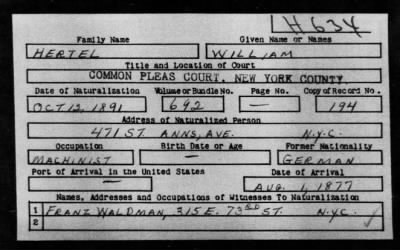 H634
Family Name Given Name or Names
HERTEL WILLIAM
Title and Location of Court
COMMON PLEAS COURT, NEW YORK COUNTY.
Date of Naturalization Volume or Bundle No. Page No. Copy of Record No.
OCT 12, 1891 692 — 194
Address of Naturalized Person
471 ST. ANNS, AVE. N.Y.C.
Occupation Birth Date or Age Former Nationality
MACHINIST — GERMAN
Port of Arrival in the United States Date of Arrival
— AUG. 1, 1877
Names, Addresses and Occupations of Witnesses To Naturalization
1 FRANZ WALDMAN, 315 E. 73RD ST. N.Y.C.
2